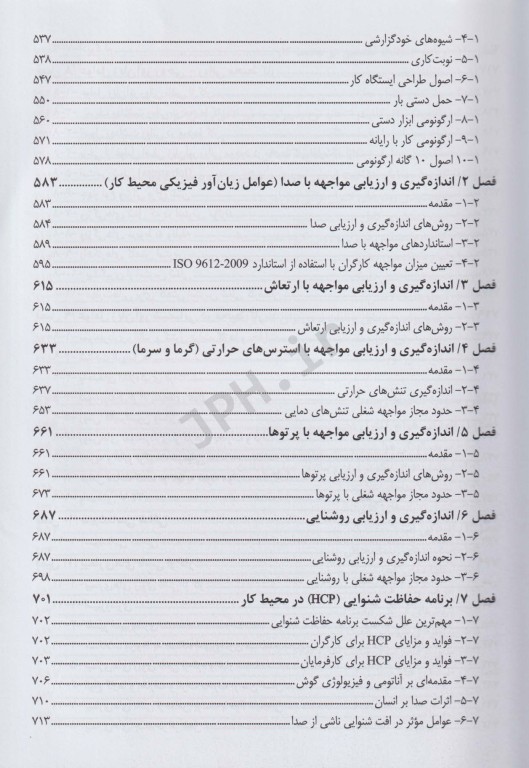 ۱-۴- شیوه‌های خودگزارشی ........ ۵۳۷
۱-۵- نوبت‌کاری ........ ۵۳۸
۱-۶- اصول طراحی ایستگاه کار ........ ۵۴۷
۱-۷- حمل دستی بار ........ ۵۵۰
۱-۸- ارگونومی ابزار دستی ........ ۵۶۰
۱-۹- ارگونومی کار با رایانه ........ ۵۷۱
۱-۱۰ اصول ۱۰ گانه ارگونومی ........ ۵۷۸
فصل ۲/ اندازه‌گیری و ارزیابی مواجهه با صدا (عوامل زیان‌آور فیزیکی محیط کار) ........ ۵۸۳
۲-۱- مقدمه ........ ۵۸۳
۲-۲- روش‌های اندازه‌گیری و ارزیابی صدا ........ ۵۸۴
۲-۳- استانداردهای مواجهه با صدا ........ ۵۸۹
۲-۴- تعیین میزان مواجهه کارگران با استفاده از استاندارد ISO 9612-2009 ........ ۵۹۵
فصل ۳/ اندازه‌گیری و ارزیابی مواجهه با ارتعاش ........ ۶۱۵
۳-۱- مقدمه ........ ۶۱۵
۳-۲- روش‌های اندازه‌گیری و ارزیابی ارتعاش ........ ۶۱۵
فصل ۴/ اندازه‌گیری و ارزیابی مواجهه با استرس‌های حرارتی (گرما و سرما) ........ ۶۳۳
۴-۱- مقدمه ........ ۶۳۳
۴-۲- اندازه‌گیری تنش‌های حرارتی ........ ۶۳۷
۴-۳- حدود مجاز مواجهه شغلی تنش‌های دمایی ........ ۶۵۳
فصل ۵/ اندازه‌گیری و ارزیابی مواجهه با پرتوها ........ ۶۶۱
۵-۱- مقدمه ........ ۶۶۱
۵-۲- روش‌های اندازه‌گیری و ارزیابی پرتوها ........ ۶۶۱
۵-۳- حدود مجاز مواجهه شغلی با پرتوها ........ ۶۷۳
فصل ۶/ اندازه‌گیری و ارزیابی روشنایی ........ ۶۸۷
۶-۱- مقدمه ........ ۶۸۷
۶-۲- نحوه اندازه‌گیری و ارزیابی روشنایی ........ ۶۸۷
۶-۳- حدود مجاز مواجهه شغلی با روشنایی ........ ۶۹۸
فصل ۷/ برنامه حفاظت شنوایی (HCP) در محیط کار ........ ۷۰۱
۷-۱- مهم‌ترین علل شکست برنامه حفاظت شنوایی ........ ۷۰۲
۷-۲- فواید و مزایای HCP برای کارگران ........ ۷۰۲
۷-۳- فواید و مزایای HCP برای کارفرمایان ........ ۷۰۳
۷-۴- مقدمه‌ای بر آناتومی و فیزیولوژی گوش ........ ۷۰۶
۷-۵- اثرات صدا بر انسان ........ ۷۱۰
۷-۶- عوامل مؤثر در افت شنوایی ناشی از صدا ........ ۷۱۳
JPH.ir